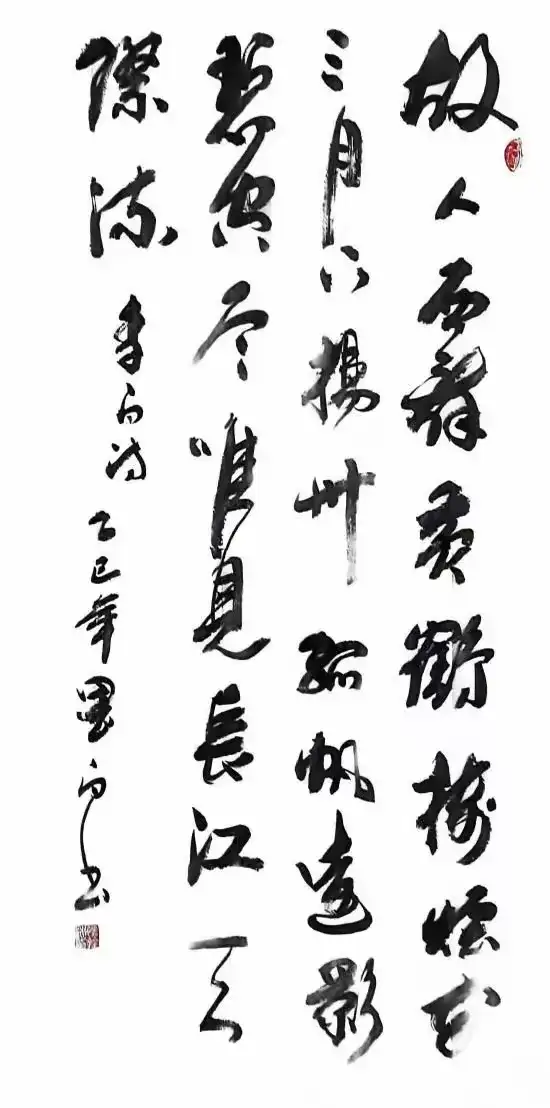 故人西辭黄鶴樓煙花
三月下揚州孤帆遠影
碧空尽唯見長江天
際流 李白詩 乙巳年 墨白书